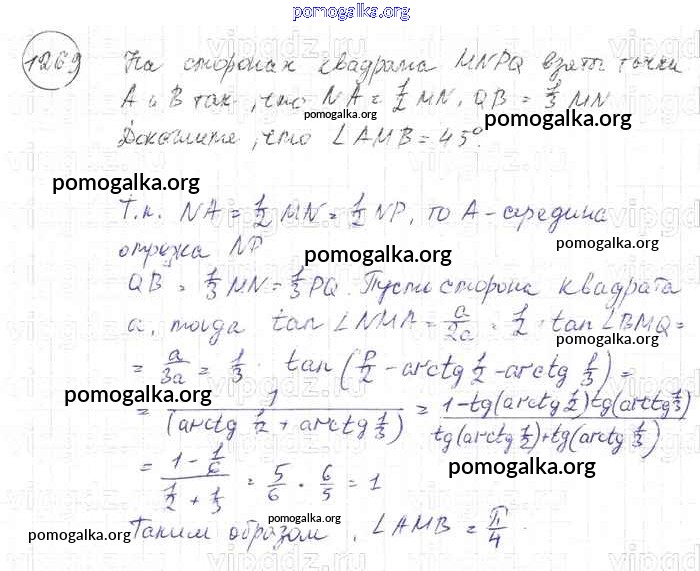 pomogalka.org
1269 На сторонах квадрата MNPQ взяты точки
A и B так, что NA = 1/2 MN, QB = 1/3 MN
pomogalka.org pomogalka.org
Докажите, что ∠AMB = 45°.
pomogalka.org
Т.к. NA = 1/2 MN = 1/2 NP, то A - середина
отрезка NP
pomogalka.org pomogalka.org
QB = 1/3 MN = 1/3 PQ. Пусть сторона квадрата
a, тогда tan ∠NMA = a/2a = 1/2 · tan ∠BMQ =
pomogalka.org
= a/3a = 1/3 · tan (P/2 - arctg 1/2 - arctg 1/3) =
pomogalka.org pomogalka.org
= 1/(arctg 1/2 + arctg 1/3) = 1-tg(arctg 1/2)tg(arctg 1/3)/tg(arctg 1/2)+tg(arctg 1/3)
pomogalka.org
= 1 - 1/6 / 1/2 + 1/3 = 5/6 · 6/5 = 1
pomogalka.org
Таким образом, ∠AMB = π/4.
pomogalka.org pomogalka.org